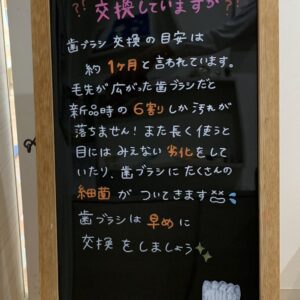 交換していますか??
歯ブラシ交換の目安は
約1ヶ月と言われています。
毛先が広がった歯ブラシだと
新品時の6割りしか汚れが
落ちません!また長く使うと
目にはみえない劣化をして
いたり、歯ブラシにたくさんの
細菌がついてきます
歯ブラシは早めに
交換をしましょう